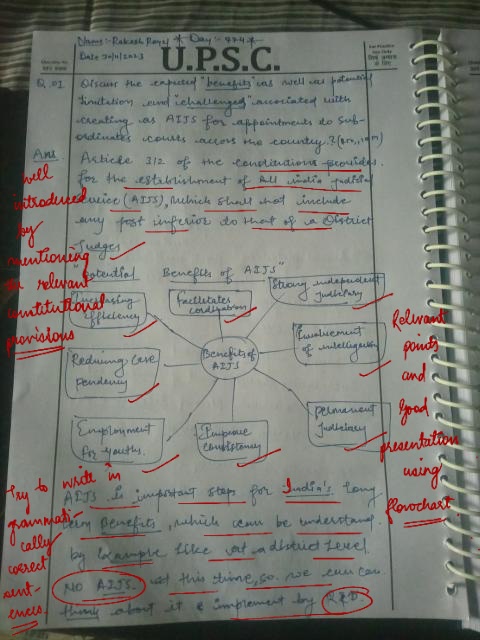 Name:- Rakesh Royal * Day:- 774 *
Date 30/11/2023
U.P.S.C.
Q.01. Discuss the expected "benefits" as well as potential
limitation and "challenges" associated with
creating as AIJS for appointments to sub-
ordinates courts across the country?
Ans. Article 312 of the constitutions provides
for the establishment of All India judicial
service (AIJS), which shall not include
any post inferior to that of a District
Judges
"Potential Benefits of AIJS"
Increasing
Efficiency
Facilitates
coordination
Strong independent
judiciary
Reducing Case
Pendency
Benefits of
AIJS
Involvement
of intelligence
Employment
for youths.
Improve
consistency
Permanent
Judiciary
AIJS is important steps for India's long
term Benefits, which can be understand
by Example like at a district level
NO AIJS at this time, so. we can
think about it & implement by R&D
well
introduced
by
mentioning
the relevant
constitutional
provisions
Relevant
points
and
Good
presentation
using
flowchart
Try to write in
grammati-
cally
correct
sent-
ences.